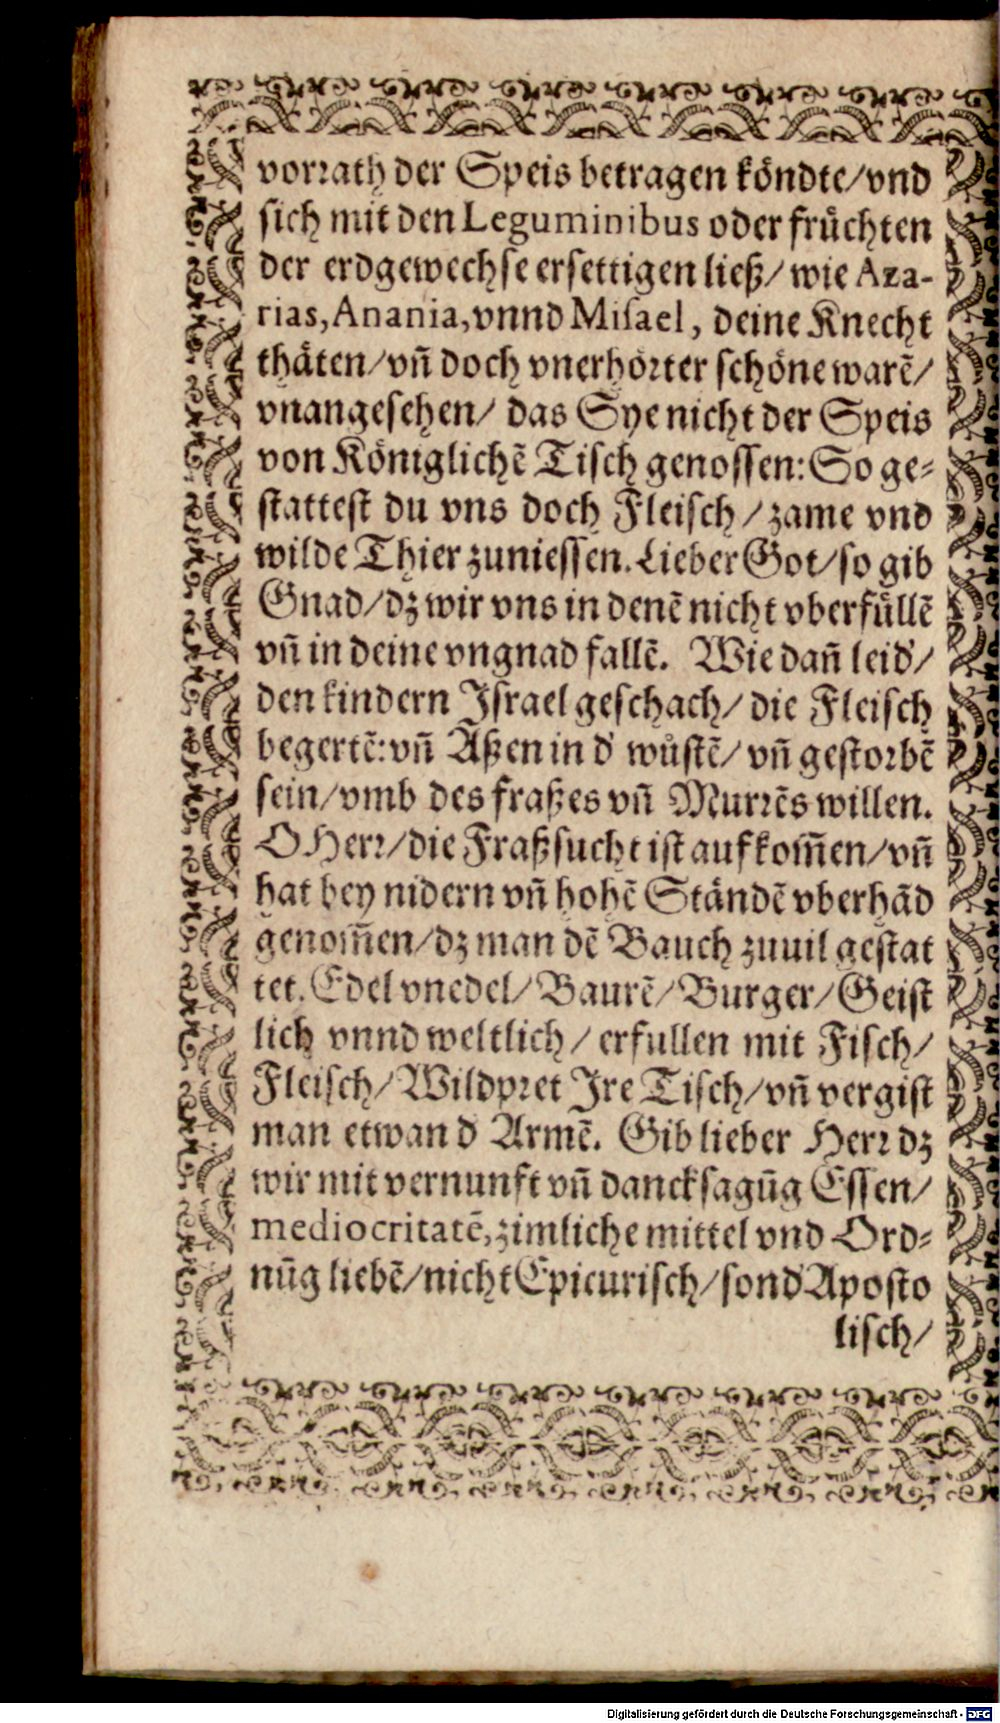 vorrath der Speis betragen köndte/vnd
sich mit den Leguminibus oder früchten
der erdgewechse ersettigen ließ/ wie Aza-
rias, Anania, vnnd Misael, deine Knecht
thäten/vñ doch vnerhörter schöne warẽ/
vnangesehen/ das Sye nicht der Speis
von Königlichẽ Tisch genossen: So ge-
stattest du vns doch Fleisch/ zame vnd
wilde Thier zuniessen. Lieber Got/so gib
Gnad/dz wir vns in denẽ nicht vberfüllẽ
vñ in deine vngnad fallẽ. Wie dañ leid'/
den kindern Israel geschach/ die Fleisch
begertẽ: vñ Aßen in d' wüstẽ/ vñ gestorbẽ
sein/vmb des fraßes vñ Murrẽs willen.
O Herr/die Fraßsucht ist aufkom̃en/vñ
hat bey nidern vñ hohẽ Ständẽ vberhãd
genom̃en/dz man dẽ Bauch zuuil gestat
tet. Edel vnedel/ Baurẽ/ Burger/ Geist
lich vnnd weltlich/ erfullen mit Fisch/
Fleisch/ Wildpret Ire Tisch/vñ vergist
man etwan d' Armẽ. Gib lieber Herr dz
wir mit vernunft vñ dancksagũg Essen/
mediocritatẽ, zimliche mittel vnd Ord-
nũg liebẽ/nicht Epicurisch/sond' Aposto
lisch/
Digitalisierung gefördert durch die Deutsche Forschungsgemeinschaft - DFG